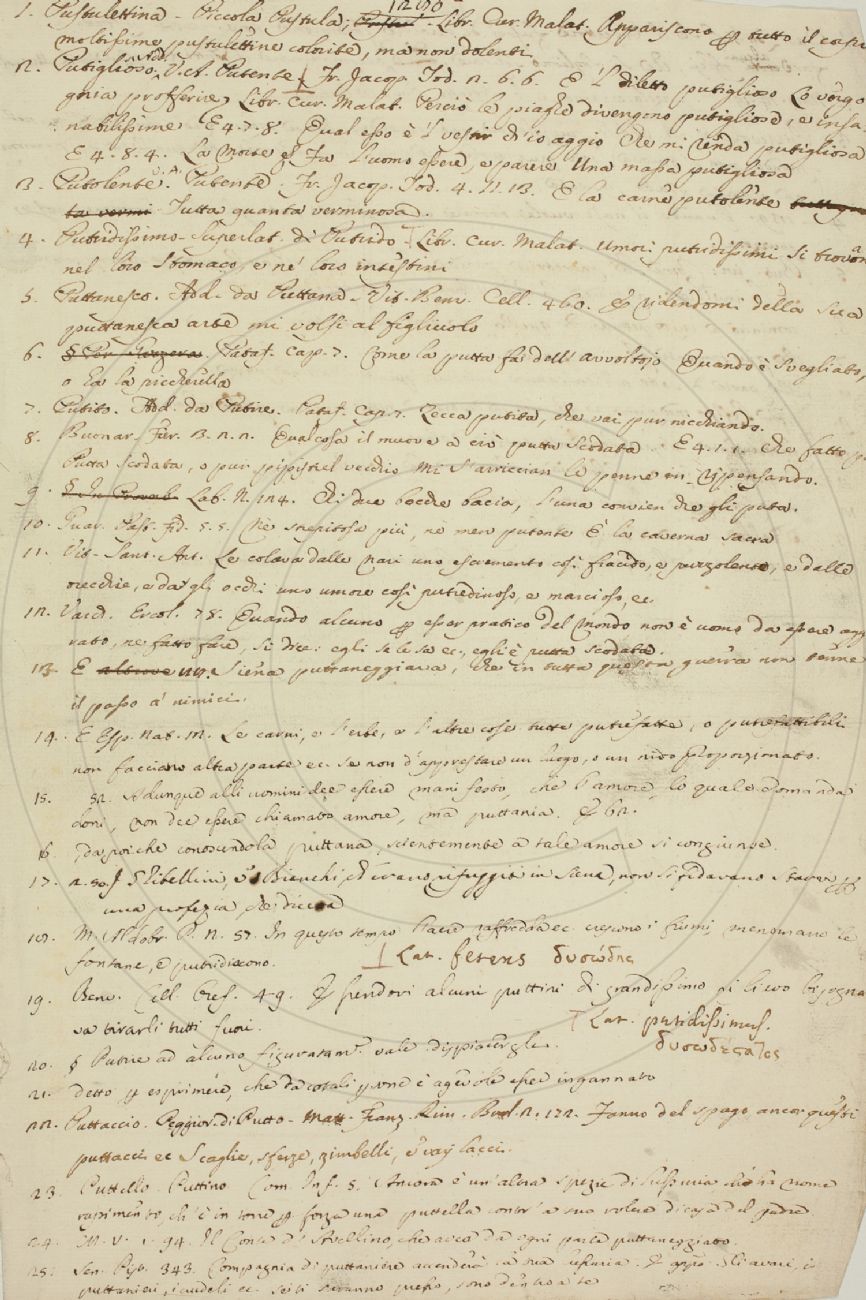 1290
1. Pustulettina - Piccola Pustula; Libr. Cur. Malat. Appariscono p tutto il corpo
moltissime pustulettine colorite, ma non dolenti
2. Putiglioso, Add. V.A. Putente. Fr. Jacop. Tod. 2. 6. 6. E 'l diletto putiglioso Lo vergo
gnia profferire, Libr. Cur. Malat. Perciò le piaghe divengono putigliose, e insa
nabilissime E 4. 7. 8. Qual esso è l' vestir ch'io aggio Che mi renda putigliosa
E 4. 8. 4. La Morte fa l'uomo essere, e parere Una massa putigliosa
3. Putolente V.A. Putente. Fr. Jacop. Tod. 4. 11. 13. E la carne putolente
ta vermi Tutta quanta verminosa.
4. Putridissimo - Superlat. di Putrido Libr. Cur. Malat. Umori putridissimi si trovan
nel loro stomaco, e ne' loro intestini
5. Puttanesco. Add. da Puttana - Vit. Benv. Cell. 460. E vedendomi della sua
puttanesca arte mi volsi al figliuolo
6. Pataf. Cap. 7. Come la putta fa dell' avvoltojo Quando è svegliato,
o ha la nicchierella
7. Putito. Add. da Putire. Pataf. Cap. 7. Zecca putita, che vai pur nicchiando.
8. Buonar. Fier. 3. 2. 2. Qualcosa il muove a ciò putta scodata E 4. 1. 1. Che fatto
Putta scodata, o pur pipistrel vecchio Mi s'arriccian le penne in ripensando.
9. § In Proverb. Lab. N. 124. Chi due bocche bacia, l'una convien che gli puta.
10. Guar. Past. Fid. 5. 5. Nè strepitosa più, nè men putente È la caverna sacra
11. Vit. Sant. Ant. Le colava dalle nari uno escremento così fracido, e puzzolente, e dalle
orecchie, e dagli occhi uno umore così putredinoso, e marcioso, ec.
12. Varch. Ercol. 78. Quando alcuno p esser pratico del Mondo non è uomo da essere agg
irato, nè fatto fare, si dice: egli se le sa ec., egli è putta scodata.
13. E altrove Siena puttaneggiava, che in tutta questa guerra non tenne
il passo a' nimici.
14. E Esp. Nat. M. Le carni, e l'erbe, e l'altre cose tutte putrefatte, o putrefattibili
non facciano altra parte ec. se non d'apprestare un luogo, o un nido proporzionato.
15. 52. Adunque alli uomini dee essere manifesto, che l'amore, lo quale domanda
doni, non dee essere chiamato amore, ma puttania. E 62.
16. dapoiche conoscendola puttana, scientemente a tale amore si congiunge.
17. Ghibellini, e Bianchi, ch'erano rifuggiti in Siena, non si fidavano stare p
una profezia che diceva
18. M. Aldobr. P. N. 57. In questo tempo l'aere raffredda ec. crescono i fiumi, menomano le
fontane, e putridiscono.
Lat. fetens δυσώδης
19. Benv. Cell. Oref. 49. E sendovi alcuni puttini di grandissimo rilievo bisogna
va tirarli tutti fuori.
Lat. putidissimus.
δυσωδέστατος
20. § Putire ad alcuno figuratam. vale dispiacergli.
21. detto p esprimere, che da cotali persone è agevole esser ingannato
22. Puttaccio. Peggior. di Putto - Matt. Franz. Rim. Burl. 2. 172. Fanno del spago ancor questi
puttacci ec Scaglie, sferze, zimbelli, e vaj lacci.
23. Puttella. Puttina Com. Inf. 5. Ancora è un'altra spezie di lussuria, ch'ha nome
rapimento, ch'è in torre p forza una puttella contr' a suo volere di casa del padre
24. M. V. 1. 94. Il Conte d'Avellino, che avea da ogni parte putteneggiato.
25. Sen. Pist. 343. Compagnia di puttaniere accenderà la tua lussuria. E app. Gli avari, i
puttanieri, i crudeli ec. se ti saranno presso, sono dentro a te